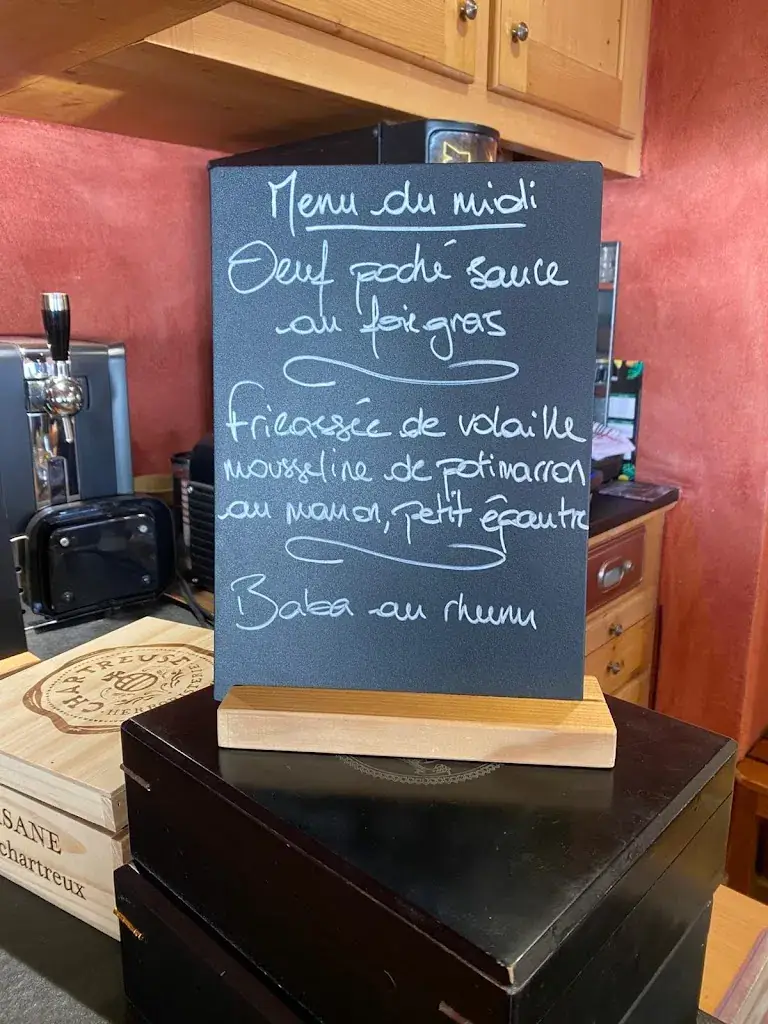 Menu du midi
Oeuf poché sauce
au foie gras
Fricassée de volaille
mousseline de potimarron
au marron, petit épeautre
Baba au rhum
CHARTREUSE
HERBO
SANE
chartreux